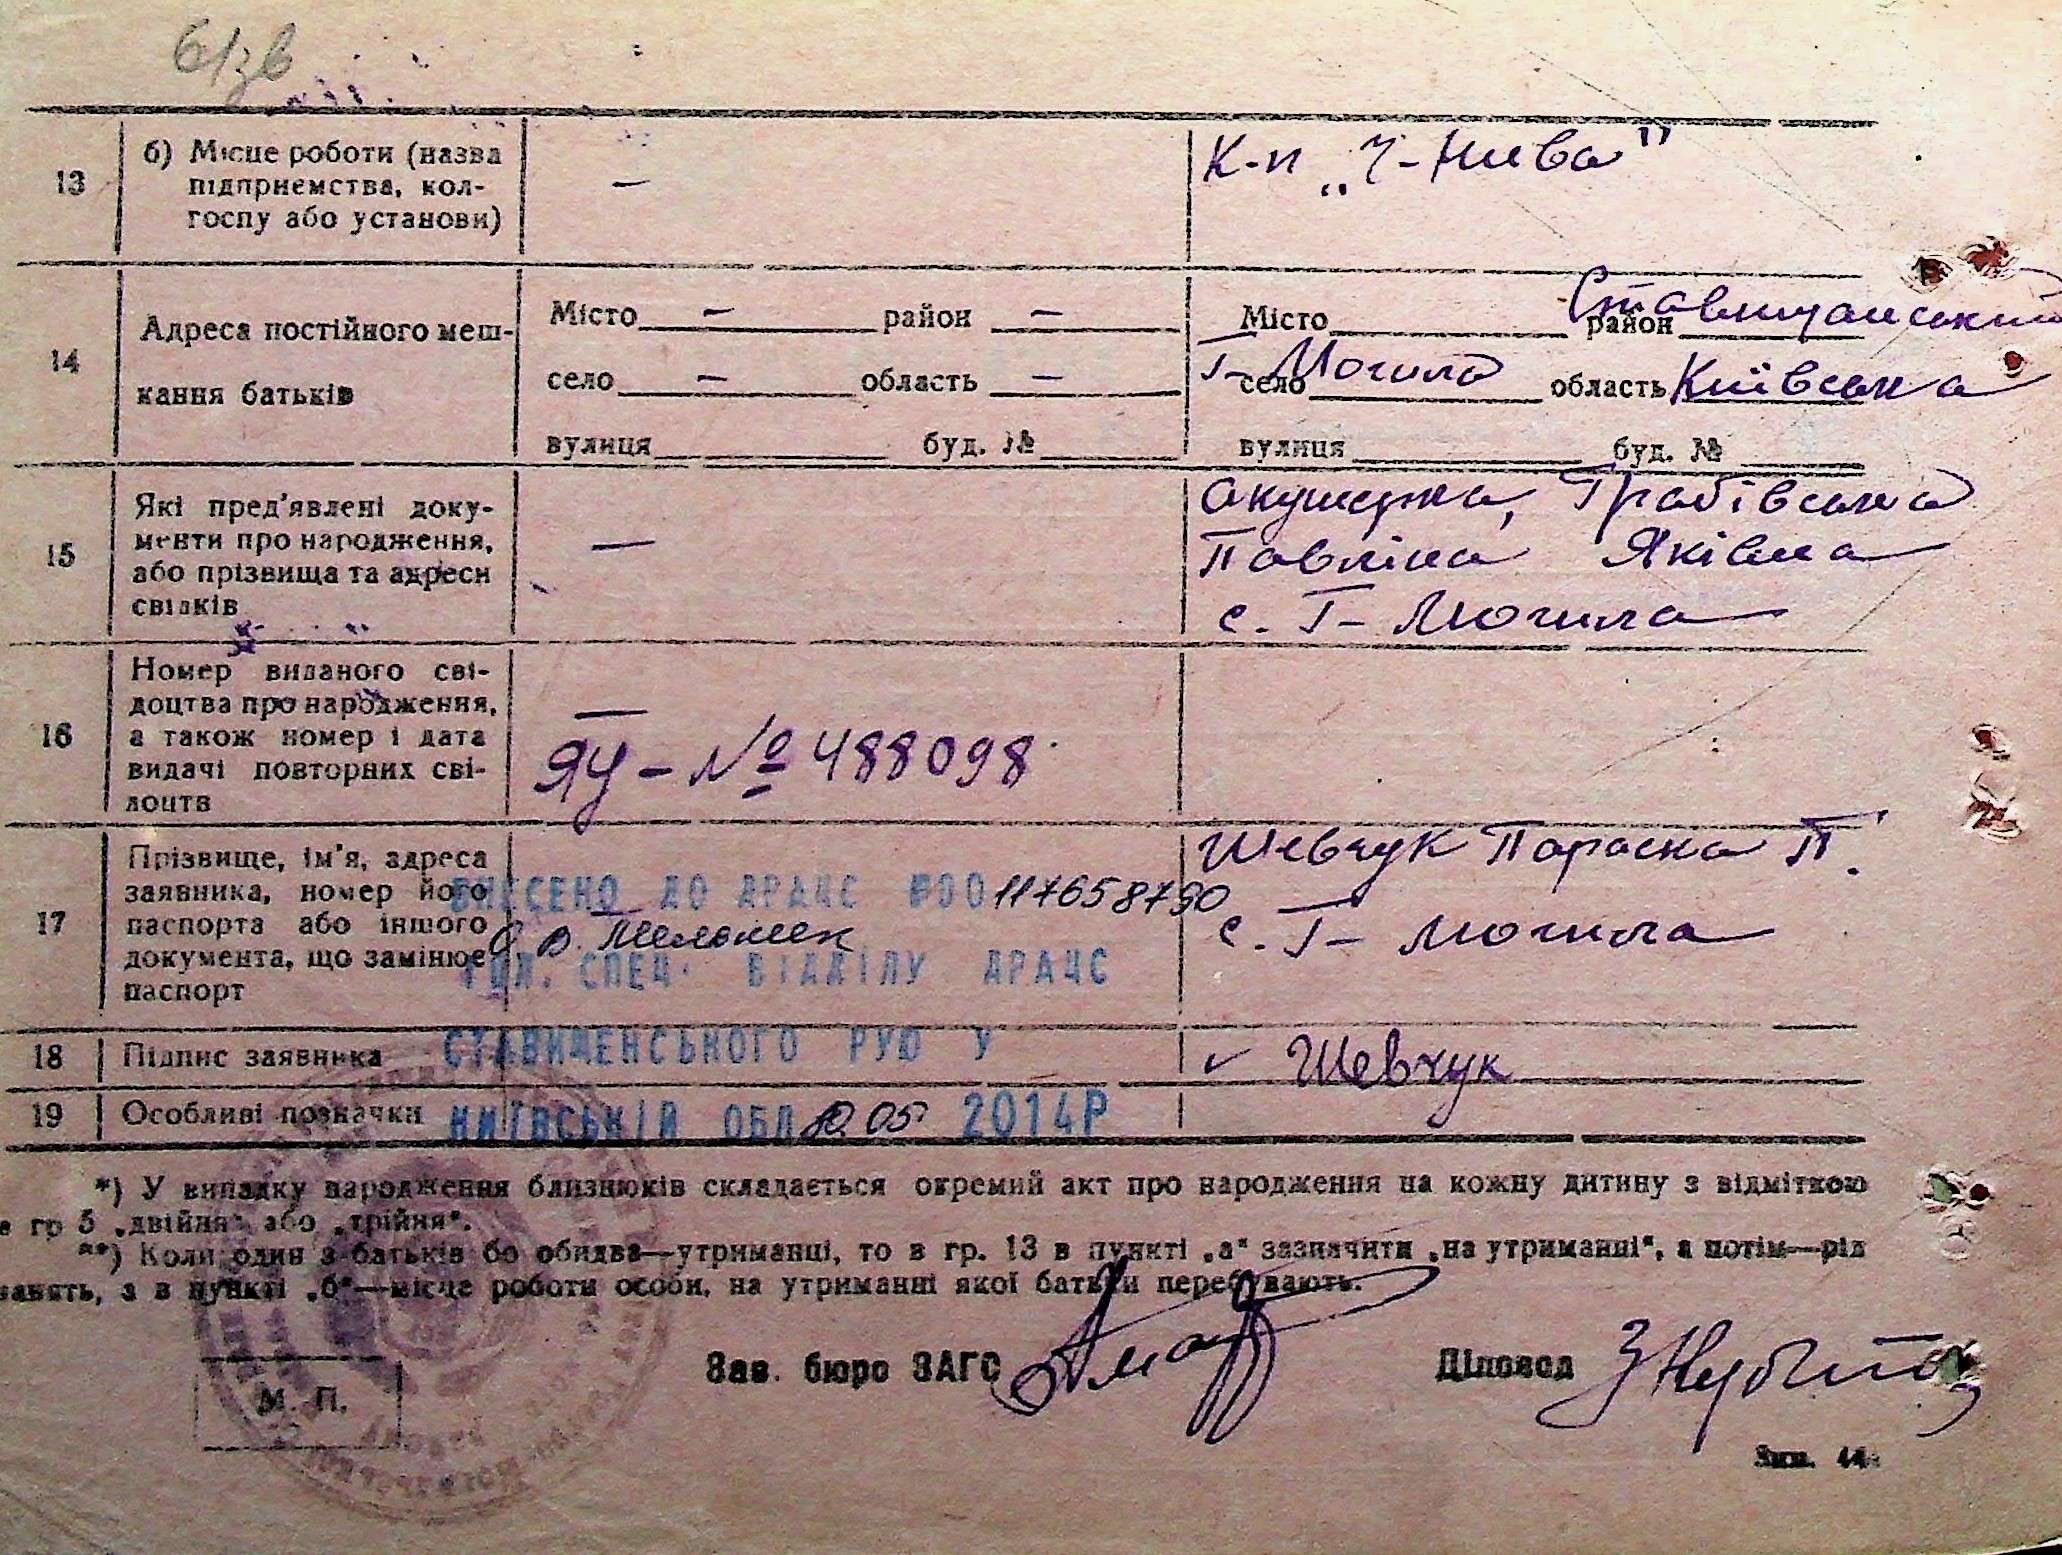 13
б) Місце роботи (назва
підприємства, кол-
госпу або установи)
—
к-п „Ч-Нива"
14
Адреса постійного меш-
кання батьків
Місто — район —
село — область —
вулиця буд. №
Місто район Ставищанський
село Г-Могила область Київська
вулиця буд. №
15
Які пред'явлені доку-
менти про народження,
або прізвища та адреси
свідків
—
Акушерка, Грабівська
Павліна Яківна
с. Г-Могила
16
Номер виданого сві-
доцтва про народження,
а також номер і дата
видачі повторних сві-
доцтв
—
ЯУ-№ 488098
17
Прізвище, ім'я, адреса
заявника, номер його
паспорта або іншого
документа, що замінює
паспорт
Шевчук Параска П.
с. Г-Могила
ВНЕСЕНО ДО ДРАЦС №00117658790
О.В. Мельник
ГОЛ. СПЕЦ. ВІДДІЛУ ДРАЦС
СТАВИЩЕНСЬКОГО РУЮ У
КИЇВСЬКІЙ ОБЛ 2014Р
18
Підпис заявника
✓ Шевчук
19
Особливі позначки
*) У випадку народження близнюків складається окремий акт про народження на кожну дитину з відміткою
в гр 5 „двійня" або „трійня".
**) Коли один з батьків бо обидва—утриманці, то в гр. 13 в пункті „а" зазначити „на утриманні", а потім—рід
занять, а в пункті „б"—місце роботи особи, на утриманні якої батьки перебувають.
Зав. бюро ЗАГС
Діловод
М. П.
Зам. 44